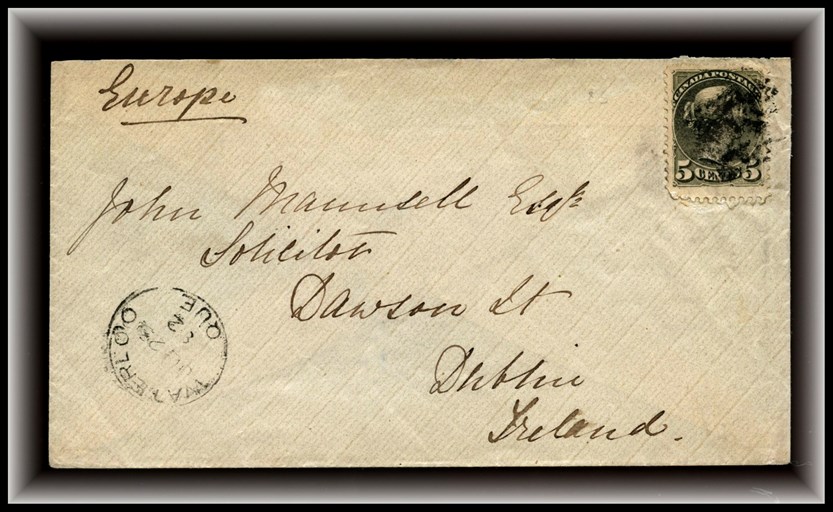 Europe
CANADA POSTAGE
5 CENTS 5
John Maunsell Esqr
Solicitor
Dawson St
Dublin
Ireland.
WATERLOO
QUE